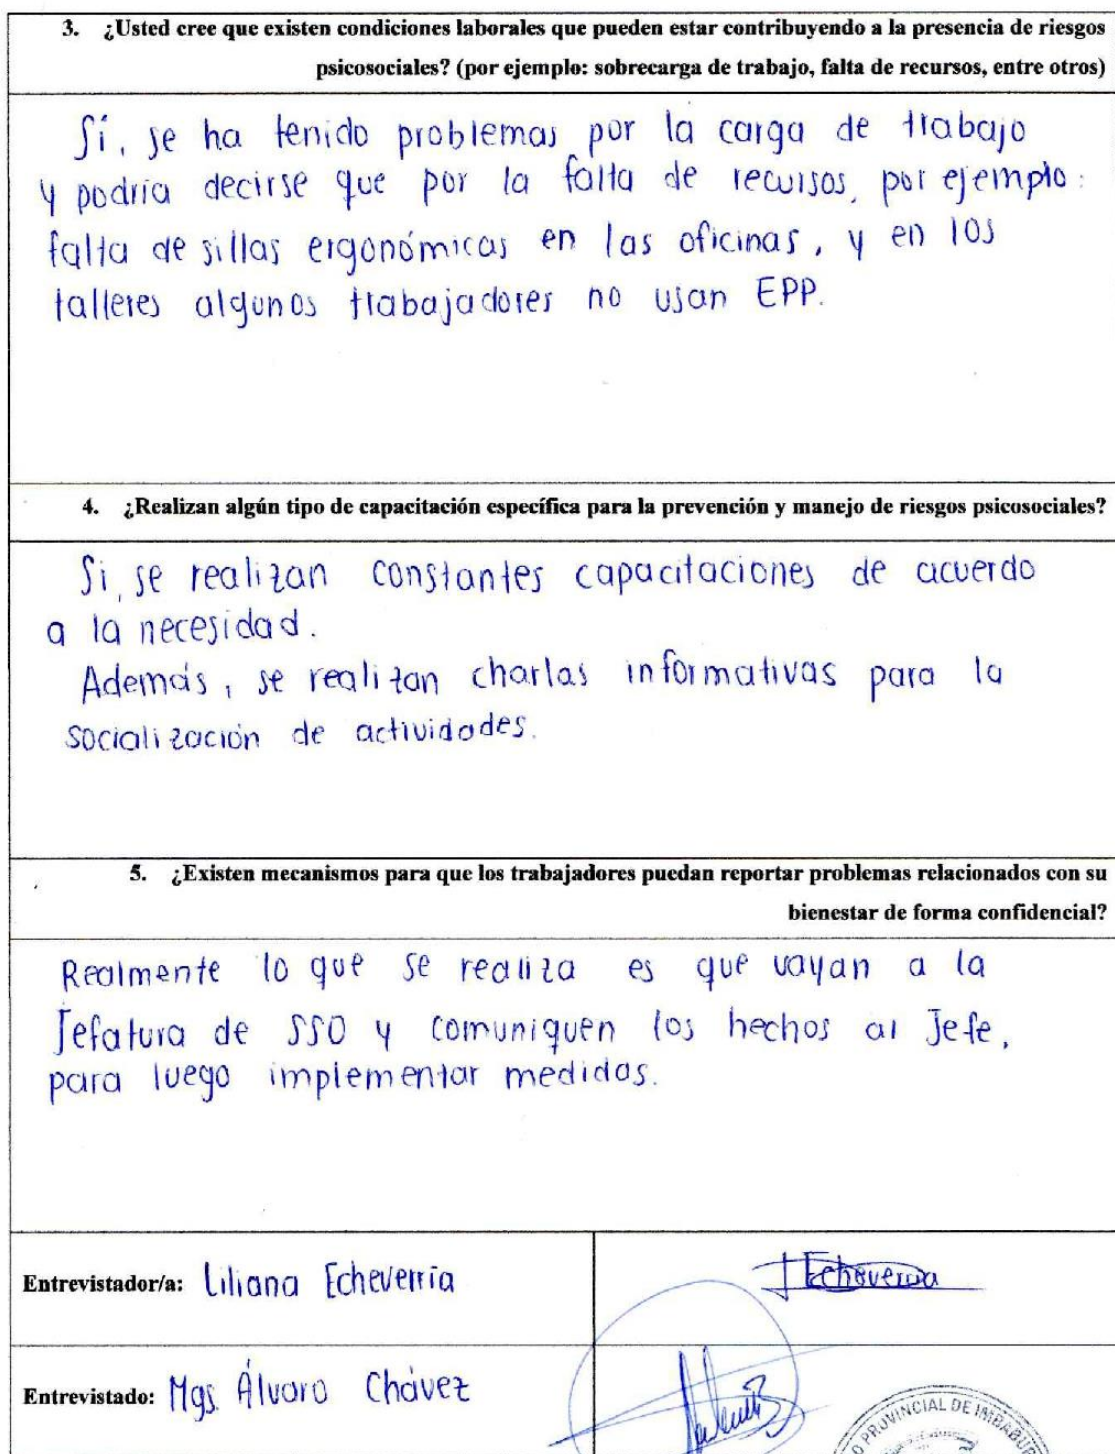 3. ¿Usted cree que existen condiciones laborales que pueden estar contribuyendo a la presencia de riesgos
psicosociales? (por ejemplo: sobrecarga de trabajo, falta de recursos, entre otros)
Sí, se ha tenido problemas por la carga de trabajo
y podría decirse que por la falta de recursos, por ejemplo:
falta de sillas ergonómicas en las oficinas, y en los
talleres algunos trabajadores no usan EPP.
4. ¿Realizan algún tipo de capacitación específica para la prevención y manejo de riesgos psicosociales?
Si, se realizan constantes capacitaciones de acuerdo
a la necesidad.
Además, se realizan charlas informativas para la
socialización de actividades.
5. ¿Existen mecanismos para que los trabajadores puedan reportar problemas relacionados con su
bienestar de forma confidencial?
Realmente lo que se realiza es que vayan a la
Jefatura de SSO y comuniquen los hechos al Jefe,
para luego implementar medidas.
Entrevistador/a: Liliana Echeverría
Echeverria
Entrevistado: Mgs. Álvaro Chávez
PROVINCIAL DE IMBABUR